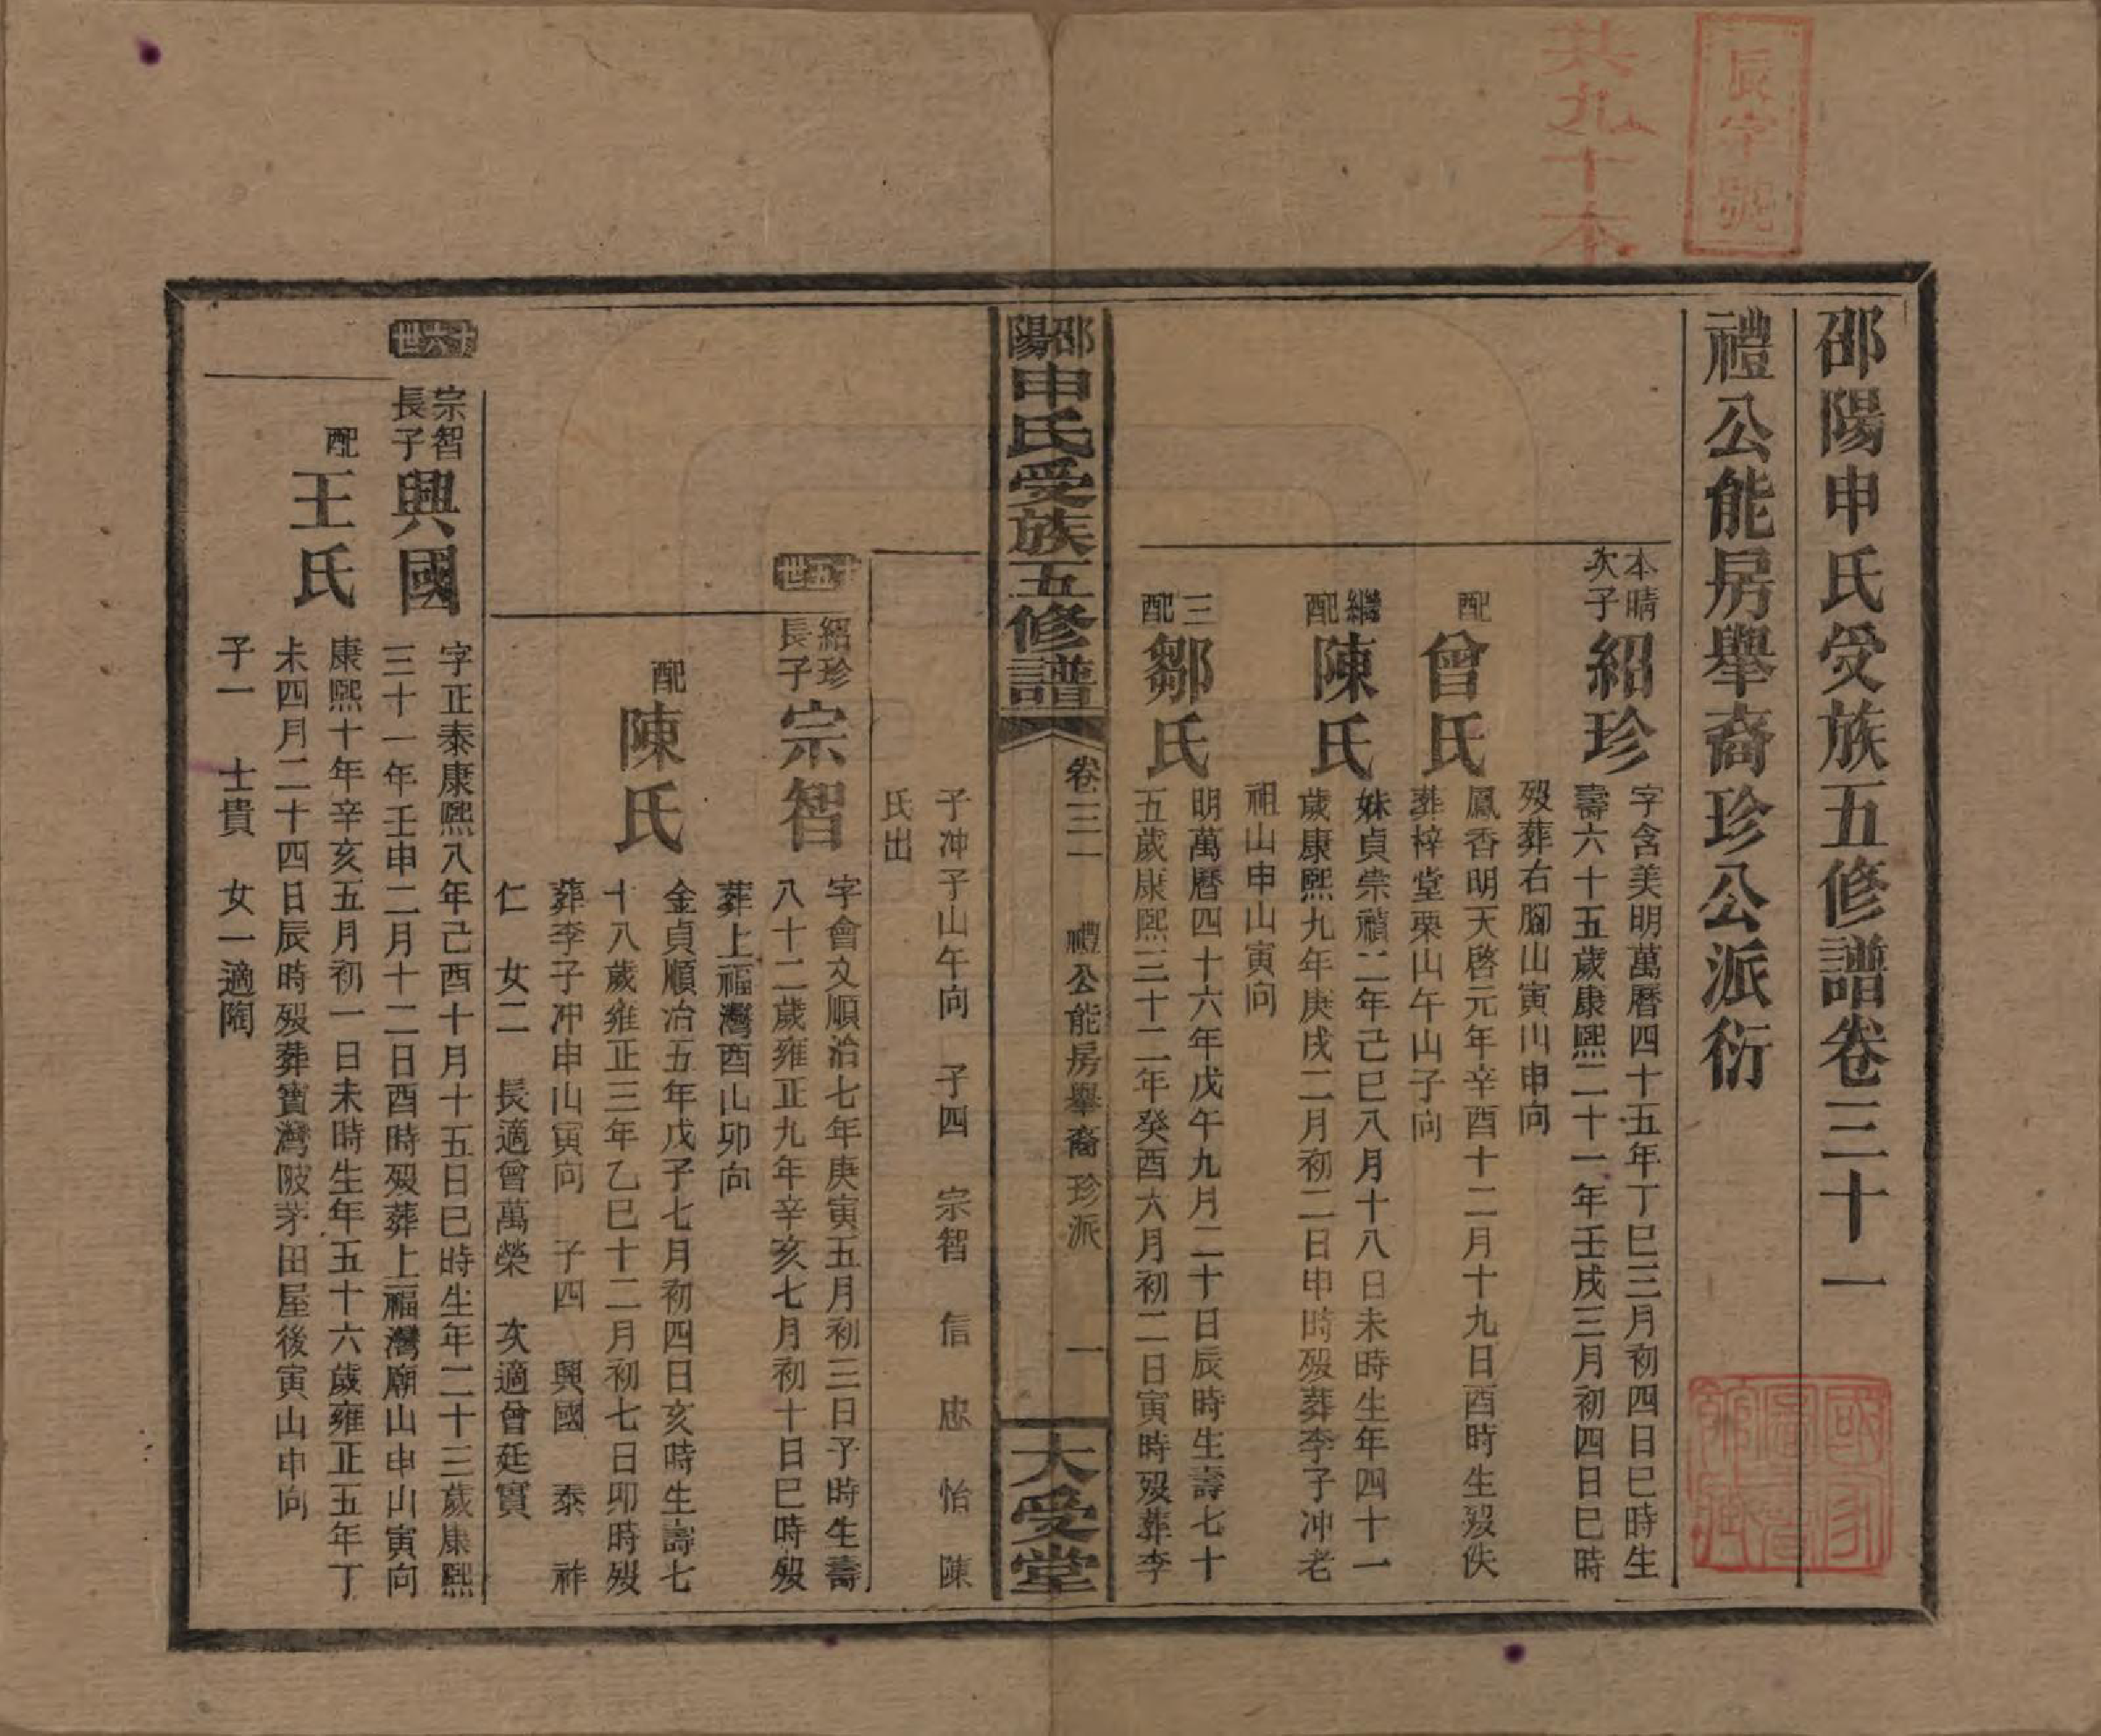 辰字號
共九十本
邵陽申氏受族五修譜卷三十一
禮公能房舉裔珍公派衍
本晴次子
紹珍
字含美明萬曆四十五年丁巳三月初四日巳時生
壽六十五歲康熙二十一年壬戌三月初四日巳時
歿葬右腳山寅山申向
配曾氏
鳳香明天啓元年辛酉十二月十九日酉時生歿佚
葬梓堂栗山午山子向
繼配陳氏
妹貞崇禎二年己巳八月十八日未時生年四十一
歲康熙九年庚戌二月初二日申時歿葬李子冲老
祖山申山寅向
三配鄒氏
明萬曆四十六年戊午九月二十日辰時生壽七十
五歲康熙三十二年癸酉六月初二日寅時歿葬李
邵陽申氏受族五修譜
卷三一 禮公能房舉裔珍派 一
大受堂
子冲子山午向 子四 宗智 信 忠 怡 陳
氏出
十五世
紹珍長子
宗智
字會文順治七年庚寅五月初三日子時生壽
八十二歲雍正九年辛亥七月初十日巳時歿
葬上福灣酉山卯向
配陳氏
金貞順治五年戊子七月初四日亥時生壽七
十八歲雍正三年乙巳十二月初七日卯時歿
葬李子冲申山寅向 子四 興國 泰 祚
仁 女二 長適曾萬榮 次適曾廷實
十六世
宗智長子
興國
字正泰康熙八年己酉十月十五日巳時生年二十三歲康熙
三十一年壬申二月十二日酉時歿葬上福灣廟山申山寅向
配王氏
康熙十年辛亥五月初一日未時生年五十六歲雍正五年丁
未四月二十四日辰時歿葬寶灣陂茅田屋後寅山申向
子一 士貴 女一適陶
國家圖書館藏